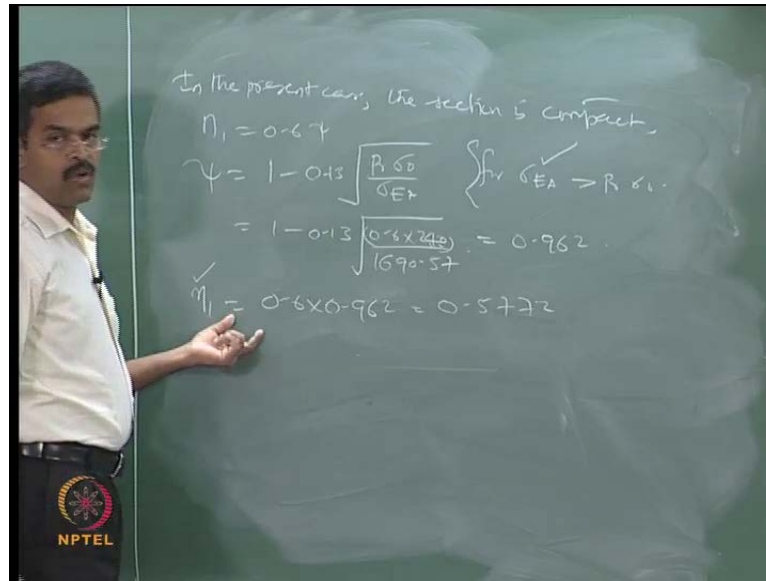 In the present case, the section is compact.
η₁ = 0.6 ψ
ψ = 1 - 0.13 √(Pr σ0 / σEA) { for σEA > Pr σ0.
= 1 - 0.13 √((0.6×240) / 1690.57) = 0.962.
η₁ = 0.6×0.962 = 0.5772
NPTEL